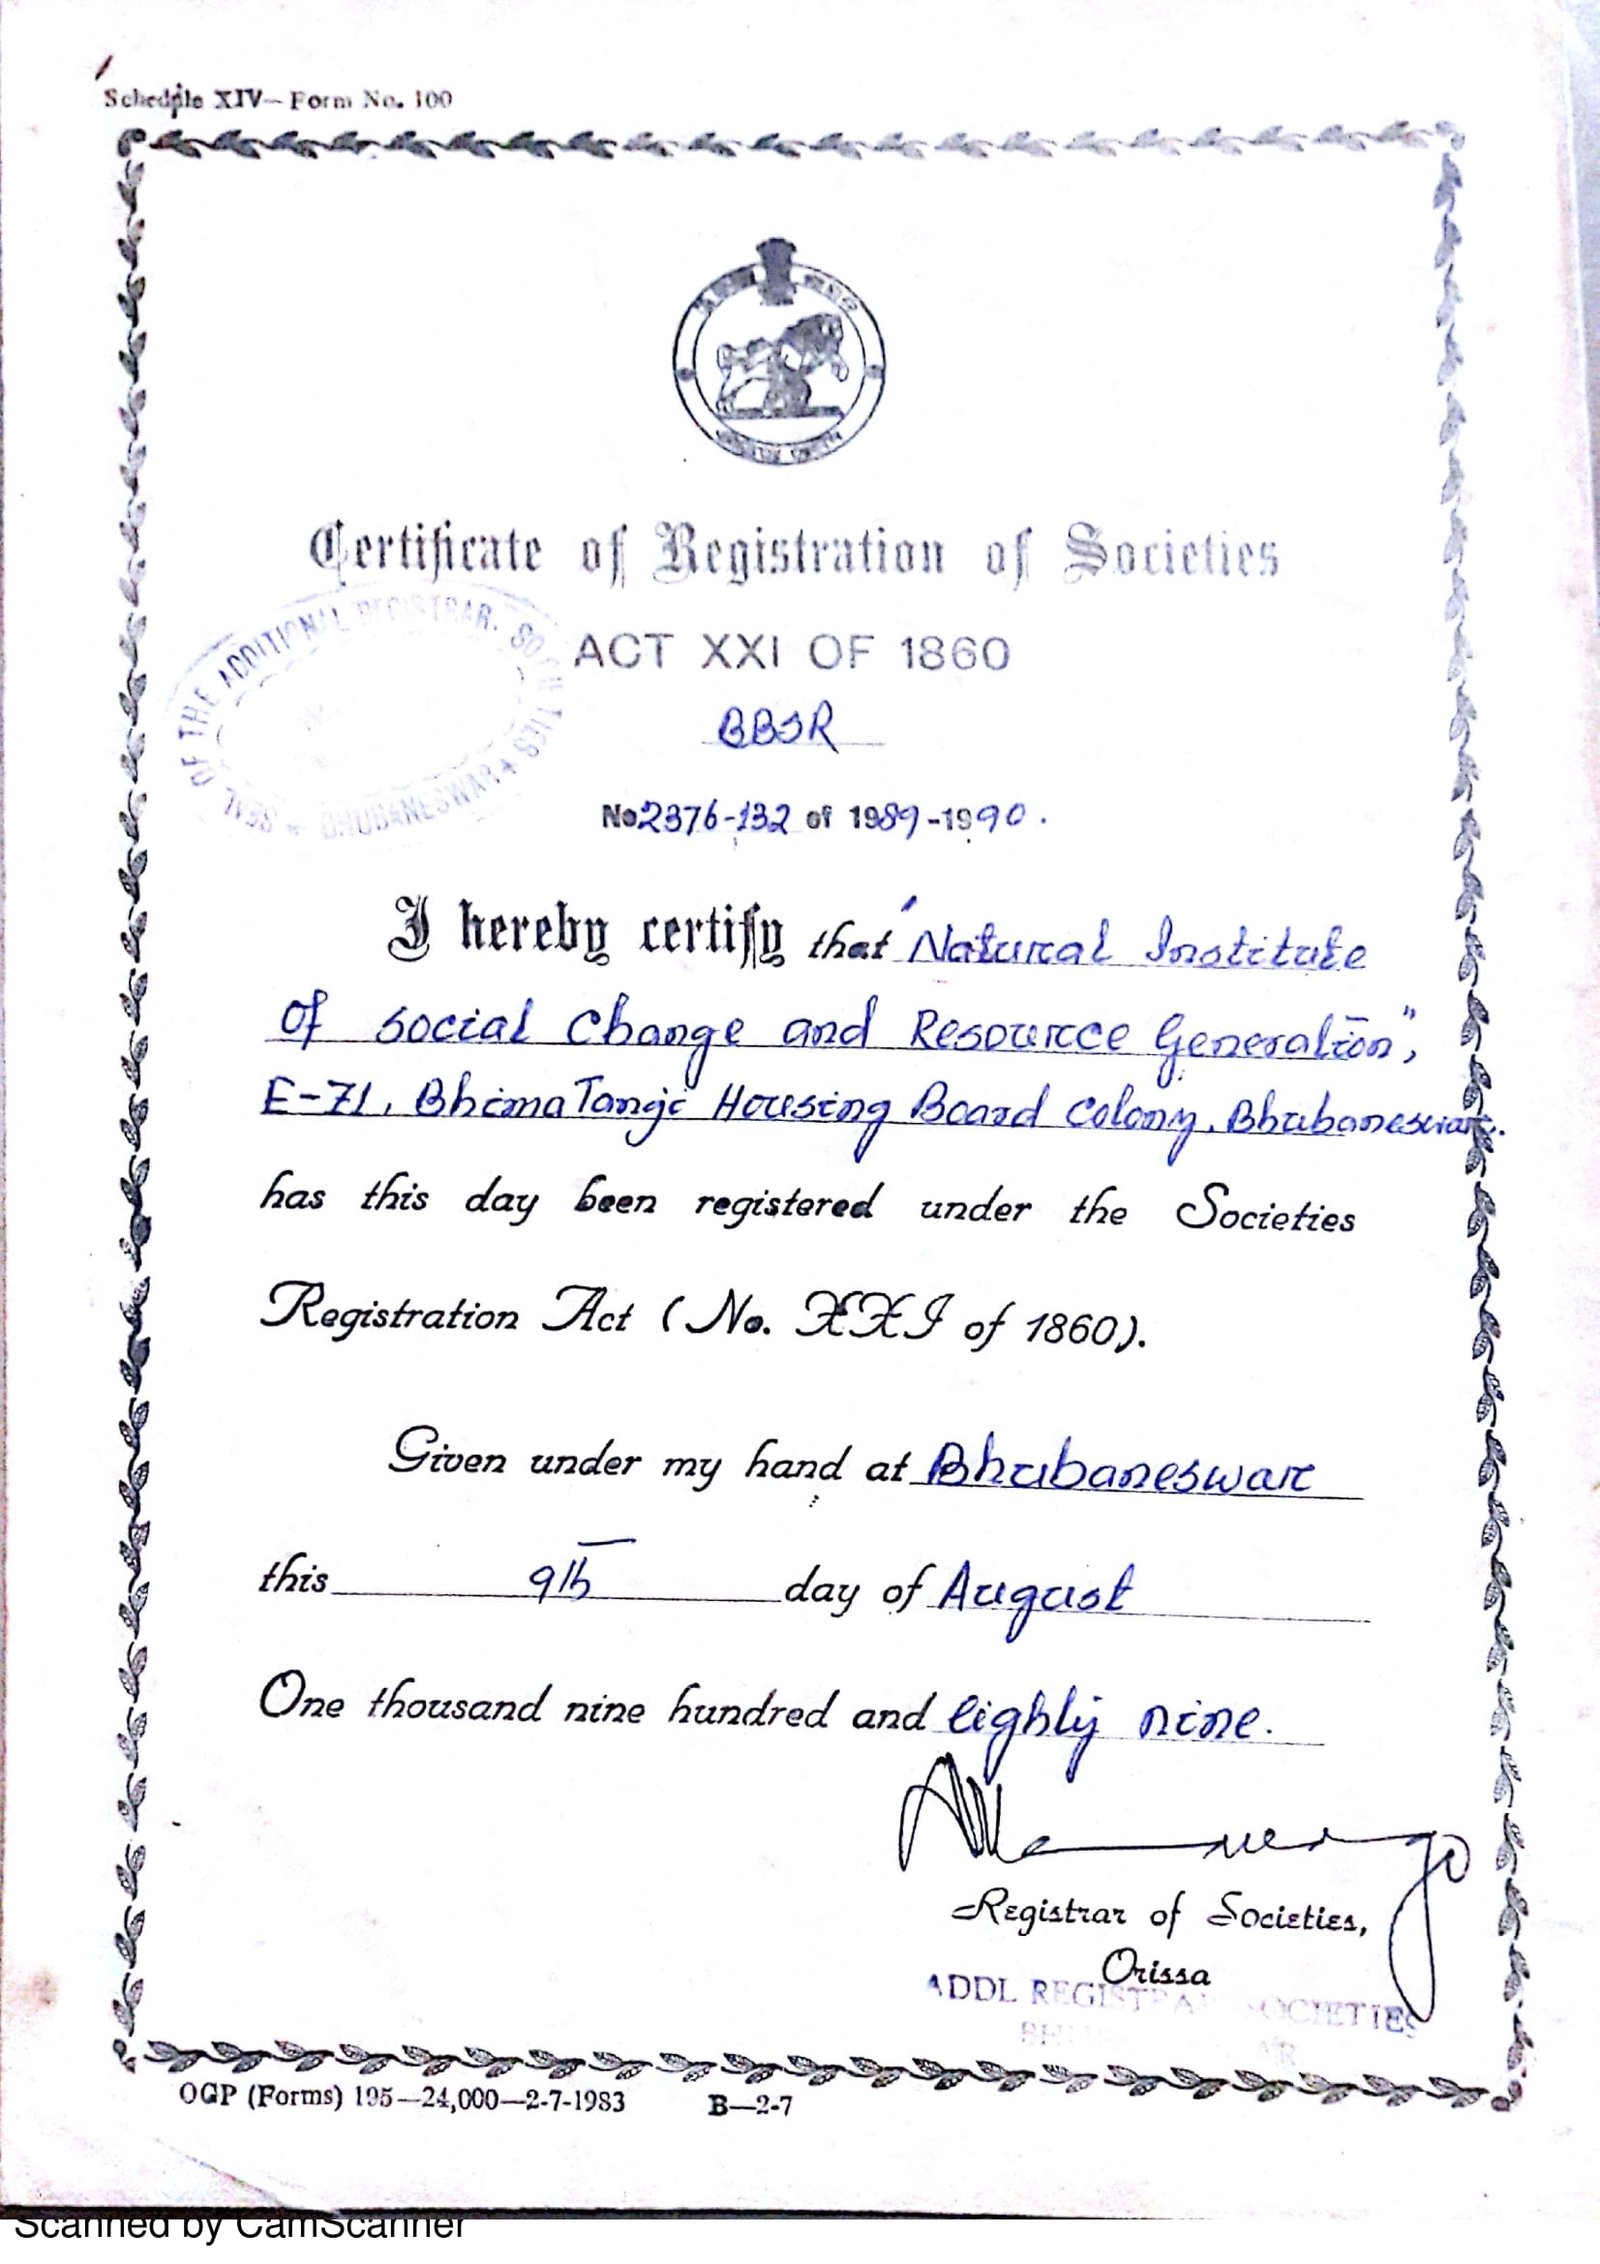 Schedule XIV—Form No. 100
Certificate of Registration of Societies
SEAL OF THE ADDITIONAL REGISTRAR, SOCIETIES BHUBANESWAR
ACT XXI OF 1860
BBSR
No 2376-132 of 1989-1990.
I hereby certify that "Natural Institute
Of Social Change and Resource Generation",
E-71, BhimaTangi Housing Board Colony, Bhubaneswar.
has this day been registered under the Societies
Registration Act (No. XXI of 1860).
Given under my hand at Bhubaneswar
this 9th day of August
One thousand nine hundred and eighty nine.
Registrar of Societies,
Orissa
ADDL REGISTRAR SOCIETIES
OGP (Forms) 195—24,000—2-7-1983 B—2-7
Scanned by CamScanner